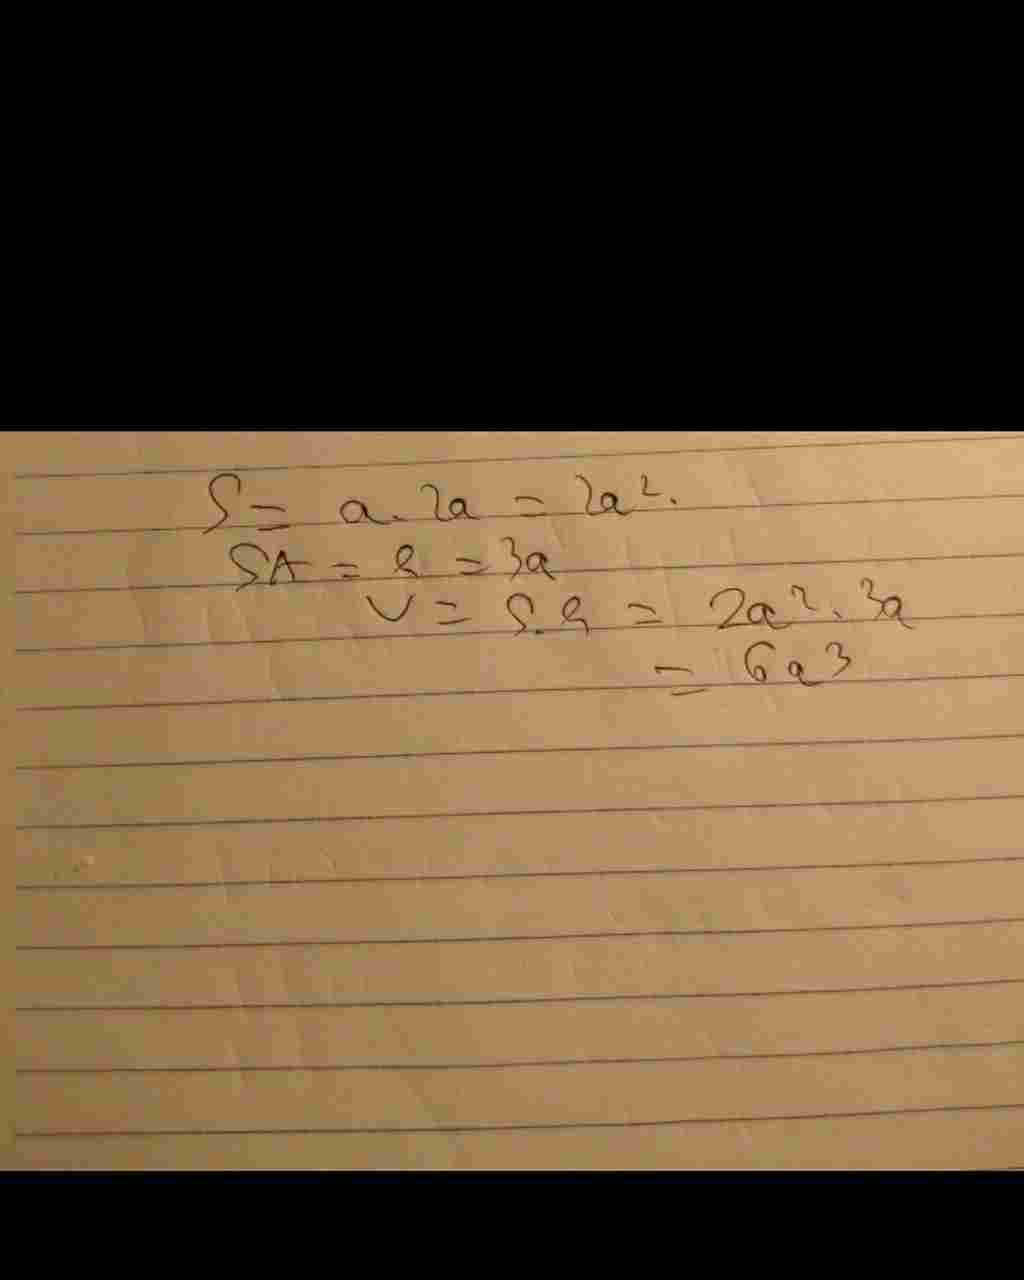 S = a. 2a = 2a².
SA = h = 3a
V = S.h = 2a². 3a
= 6a³